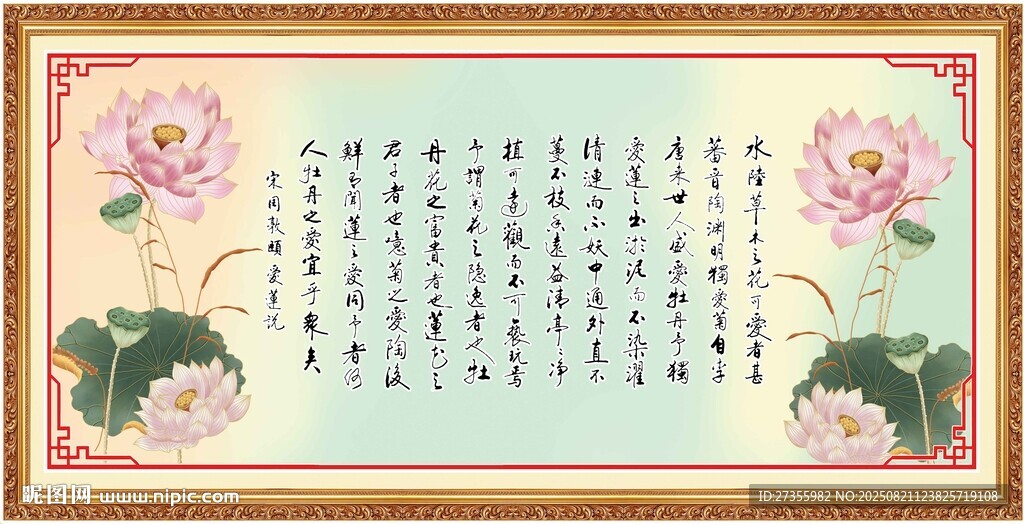 水陸草木之花可愛者甚
蕃晉陶淵明獨愛菊自李
唐来世人盛愛牡丹予獨
愛蓮之出淤泥而不染濯
清漣而不妖中通外直不
蔓不枝香遠益清亭亭淨
植可遠觀而不可褻玩焉
予謂菊花之隐逸者也牡
丹花之富貴者也蓮花之
君子者也噫菊之愛陶後
鮮有聞蓮之愛同予者何
人牡丹之愛宜乎衆矣
宋周敦頤愛蓮説
昵图网 www.nipic.com
ID:27355982 NO:20250821123825719108